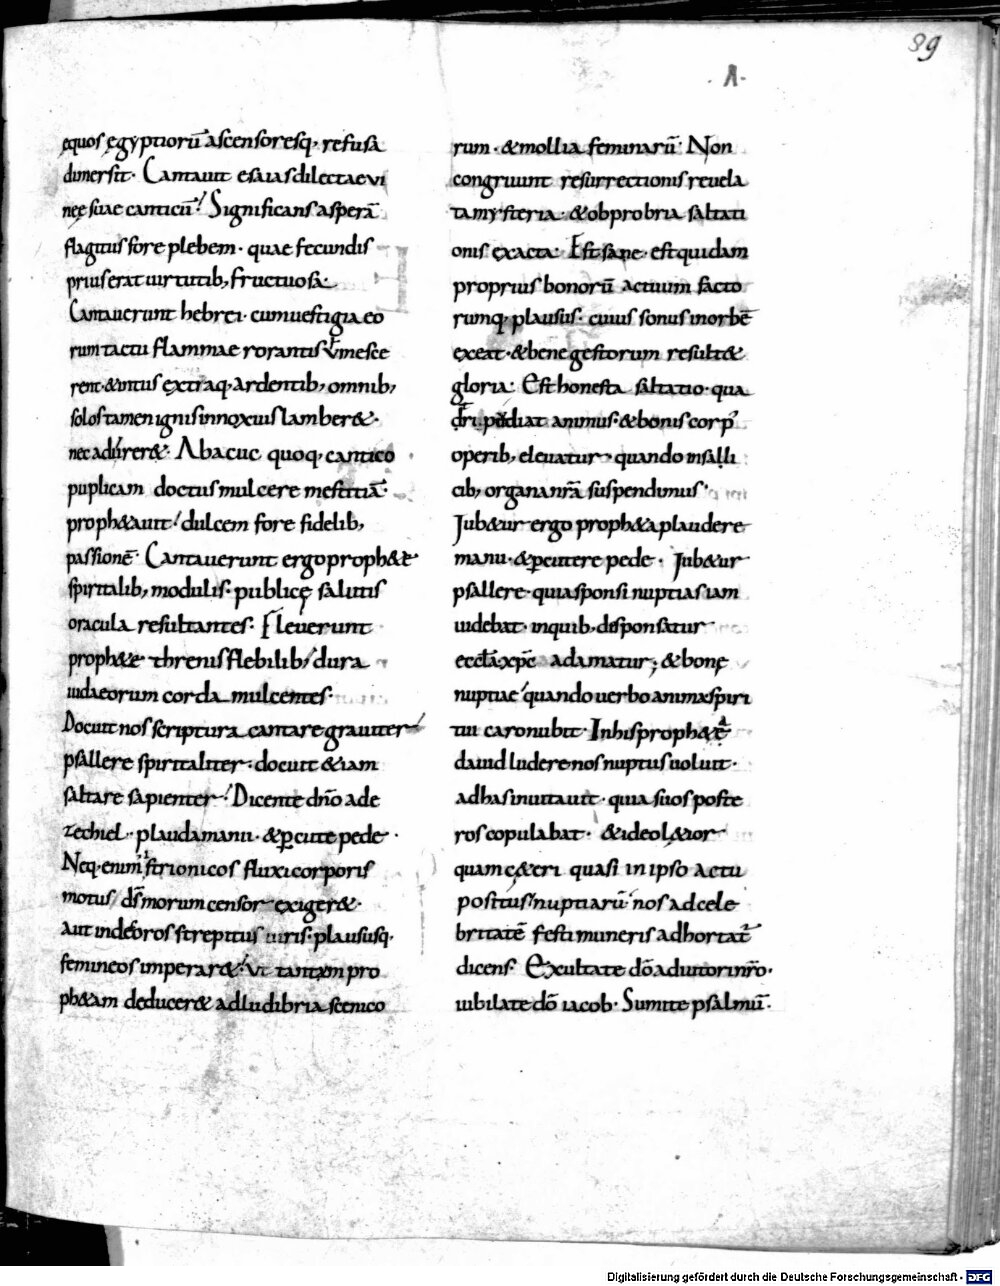 89
·Λ·
equos ęgyptiorū ascensoresq; refusa
dimersit· Cantauit esaias dilectae vi
neę suae canticū! Significans asperā
flagitiis fore plebem· quae fecundis
prius erat uirtutib; fructuosa·
Cantauerunt hebrei· cum uestigia eo
rum tactu flammae rorantis umesce
rent· & intus extraq; ardentib; omnib;
solos tamen ignis innoxius lamber&·
nec adurer&· Abacuc quoq; cantico
puplicam doctus mulcere mestitiā·
proph&auit! dulcem fore fidelib;
passionē· Cantauerunt ergo proph&e
spiritalib; modulis· publicę salutis
oracula resultantes· Fleuerunt
proph&e threnis flebilib; dura
iudaeorum corda mulcentes·
Docuit nos scriptura cantare grauiter
psallere spiritaliter· docuit & iam
saltare sapienter! Dicente dn̄o ade
zechiel·· plauda manu· & percute pede·
Neq· enim strionicos fluxi corporis
motus/ ds̄ morum censor exiger&·
aut indecoros strepitus uiris· plaususq·
femineos imperar&! vt tantam pro
ph&am deducer& ad ludibria scenico
rum· & mollia feminarū· Non
congruunt resurrectionis reuela
ta mysteria· & obprobria saltati
onis exacta· Est sane· est quidam
proprius bonorū actuum facto
rumq; plausus· cuius sonus in orbē
exeat· & bene gestorum result&
gloria· Est honesta saltatio· qua
animus· & bonis corp
operib; eleuatur· quando in salli
cib; organa nr̄a suspendimus·
Jub&ur ergo proph&a plaudere
manu· & percutere pede· Jub&ur
psallere· quia sponsi nuptias iam
uidebat· in quib; disponsatur
eccl̄a· xp̄c adamatur; & bonę
nuptiae quando uerbo anima spiri
tui caro nubit· In his proph&ę
dauid ludere nos nuptiis uoluit·
ad has inuitauit· quia suos poste
ros copulabat· & ideo l&ior
quam c&eri quasi in ipso actu
positus nuptiarū nos ad cele
britatē festi muneris adhortat
dicens· Exultate dō adiutori nr̄o·
iubilate dō iacob· Sumite psalmū·
Digitalisierung gefördert durch die Deutsche Forschungsgemeinschaft - DFG